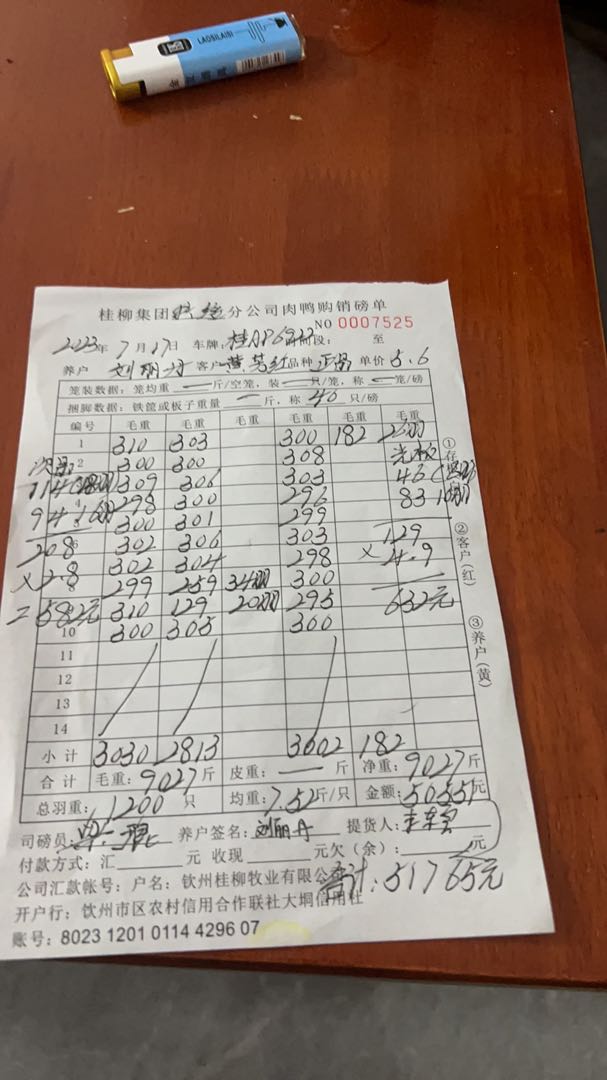 LAOBILAISI
桂柳集团 分公司肉鸭购销磅单
NO 0007525
2023年7月17日 车牌: 时间段: 至
养户 刘丽丹 客户 黄芳红 品种 正品 单价 5.6
笼装数据: 笼均重 — 斤/空笼, 装 — 只/笼, 称 — 笼/磅
捆脚数据: 铁筐或板子重量 — 斤, 称 40 只/磅
编号 毛重 毛重 毛重 毛重 毛重 毛重
1 310 303 300 182
2 300 300 308
309 306 303 46
298 300 296 83
9 4 300 301 299
208 302 306 303 129
×2.8 302 304 298 ×4.9
8 299 259 34羽 300
=582元 310 129 20羽 295 632元
10 300 305 300
11
12
13
14
小计 3030 2813 3002 182
合计 毛重: 9027斤 皮重: — 斤 净重: 9027斤
总羽重: 1200 只 均重: 7.52斤/只 金额: 50551元
司磅员: 养户签名: 刘丽丹 提货人:
付款方式: 汇 元 收现 元欠(余): 元
公司汇款帐号: 户名: 钦州桂柳牧业有限公
合计: 51765元
开户行: 钦州市区农村信用合作联社大垌信用社
账号: 8023 1201 0114 4296 07
①存
②客户(红)
③养户(黄)